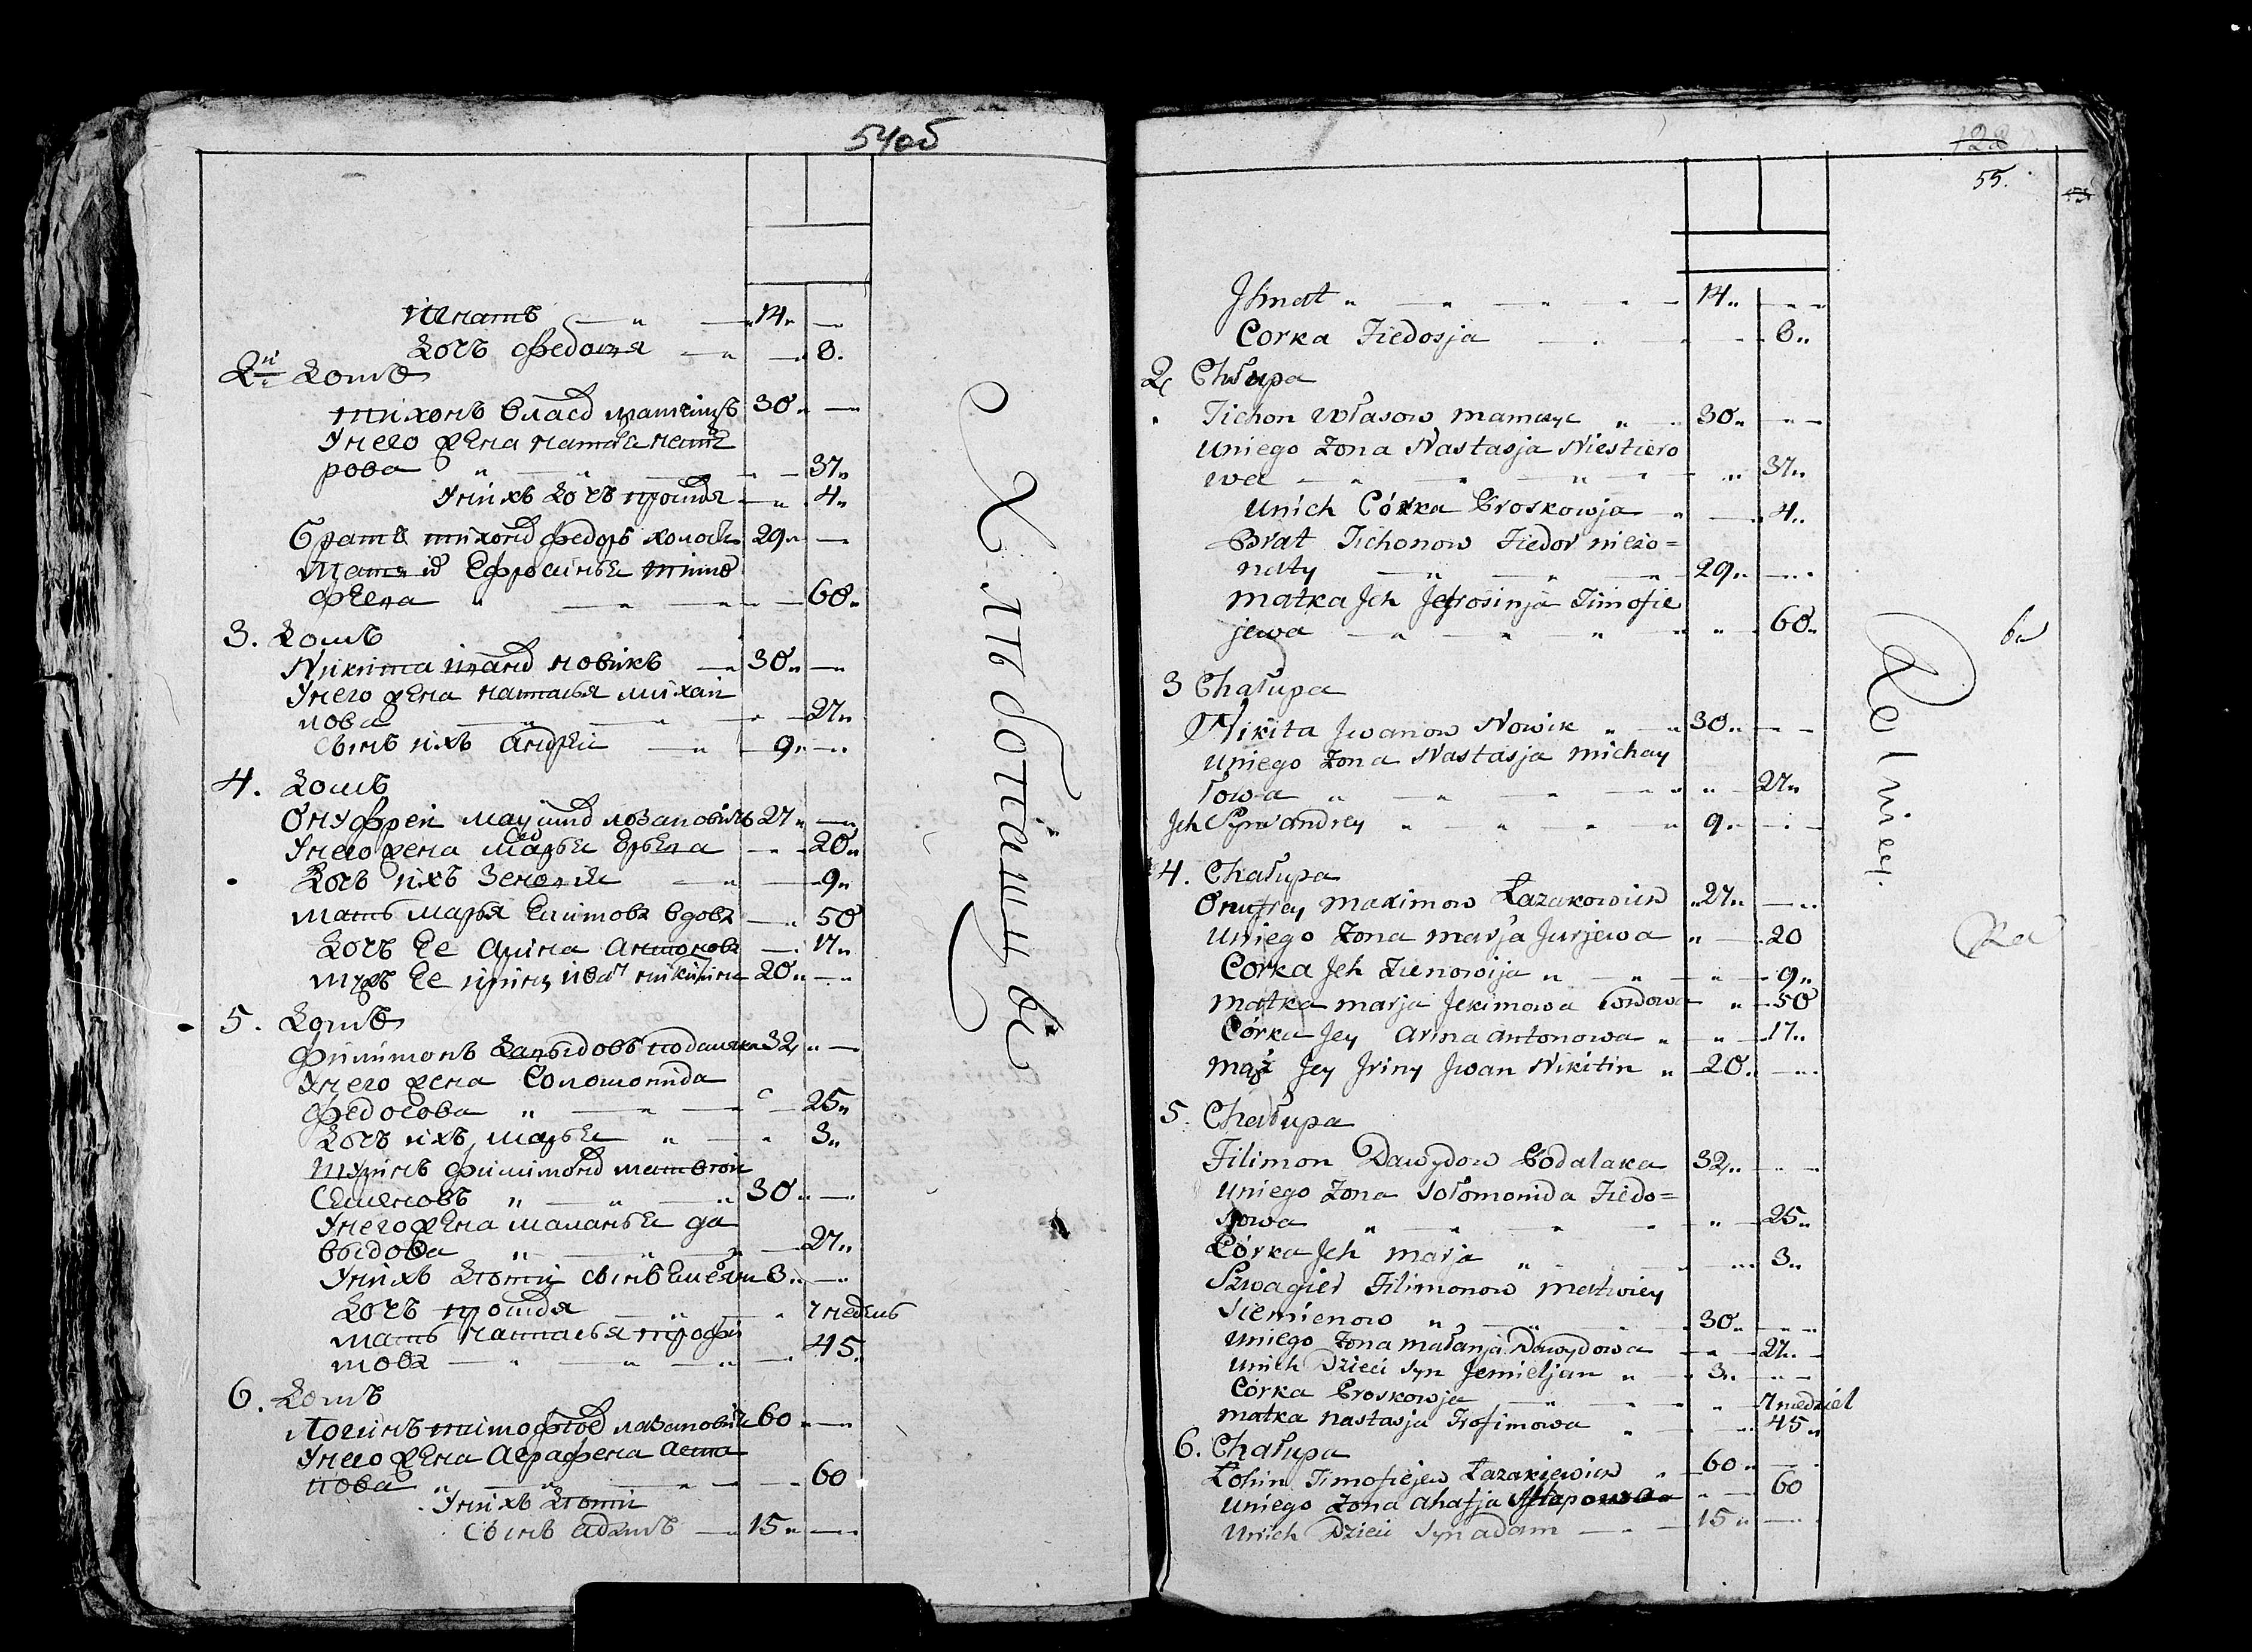 54об
14
Дочь Федосья 8
2й Домъ
Тихонъ Власо 30
У него жена Настася Несте
рова 37
У нихъ дочь 4
Братъ Тихоно Федоръ холостъ 29
Мать и Ефросинья Тимо
феева 60
3. Домъ
Никита Ивано Новикъ 30
У него жена Настасья Михаи
лова 27
Сынъ ихъ Андреи 9
4. Домъ
Онуфреи 27
У него жена Марья 20
Дочь ихъ Зеновия 9
Мать Марья Екимова вдова 50
Дочь Ее Арина Антонова 17
Мужъ Ее Ирины Иванъ Никитинъ 20
5. Домъ
Филимонъ Давыдовъ Подаляка 32
У него жена Соломонида
Федосова 25
Дочь ихъ Марья 3
Шуринъ Филимоно Матвеи
Семеновъ 30
У него жена Маланья Да
выдова 27
У нихъ дети сынъ Емелян 3
Дочь 7 недель
Мать Настасья Трофи
мова 45
6. Домъ
Логинъ Тимофее 60
У него жена Аграфена Аста
пова 60
У нихъ дети
Сынъ Адамъ 15
Хлпботашцы
128
55.
Jhnat 14
Corka Fiedosja 8
2 Chałupa
Tichon Własow 30
Uniego Zona Nastasja Niestiero
wa 37
Unich Córka Proskowja 4
Brat Tichonow Fiedor niezo=
naty 29
Matka Jch Jefrosinja Timofie
jewa 60
3 Chałupa
Nikita Jwanow Nowik 30
Uniego Zona Nastasja Michay
łowa 27
Jch Syn Andrey 9
4. Chałupa
Onufrey Maximow Łazakowicz 27
Uniego Zona Marja Jurjewa 20
Corka Jch Zienowija 9
Matka Marja Jekimowa Wdowa 50
Córka Jey Arina Antonowa 17
Mąż Jey Jriny Jwan Nikitin 20
5. Chałupa
Filimon Dawydow Podalaka 32
Uniego Zona Sołomonida Fiedo=
sowa 25
Córka Jch Marja 3
Szwagier Filimonow Matwiey
Siemienow 30
Uniego Zona Małanja Dawydowa 27
Unich Dzieci Syn Jemieljan 3
Córka Proskowja 7 niedziel
Matka Nastasja Trofimowa 45
6. Chałupa
Łohin Timofiejew Łazakiewicz 60
Uniego Zona Ahafja Astapowa 60
Unich Dzieci Syn Adam 15